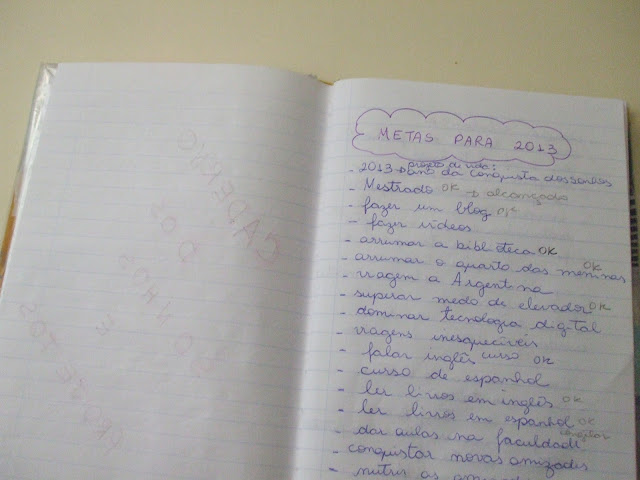 CADERNO
DOS
E
PROJETOS
METAS PARA 2013
projeto de vida:
- 2013 ano da conquista dos sonhos
- Mestrado OK → alcançado
- fazer um blog OK
- fazer vídeos
- arrumar a biblioteca OK
- arrumar o quarto das meninas OK
- viagem a Argentina
- superar medo de elevador OK
- dominar tecnologia digital
- viagens inesquecíveis
- falar inglês curso OK
- curso de espanhol
- ler livros em inglês OK
- ler livros em espanhol OK
- dar aulas na faculdade
- conquistar novas amizades
- nutrir as